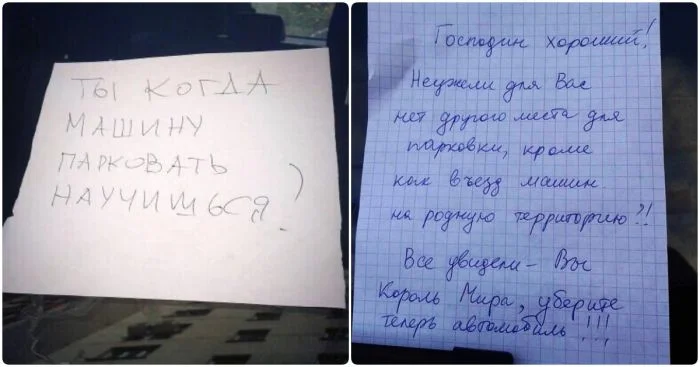 ТЫ КОГДА
МАШИНУ
ПАРКОВАТЬ
НАУЧИШЬСЯ?
Господин хороший!
Неужели для Вас
нет другого места для
парковки, кроме
как въезд машин
на родную территорию?!
Все увидели – Вы
Король Мира, уберите
теперь автомобиль!!!